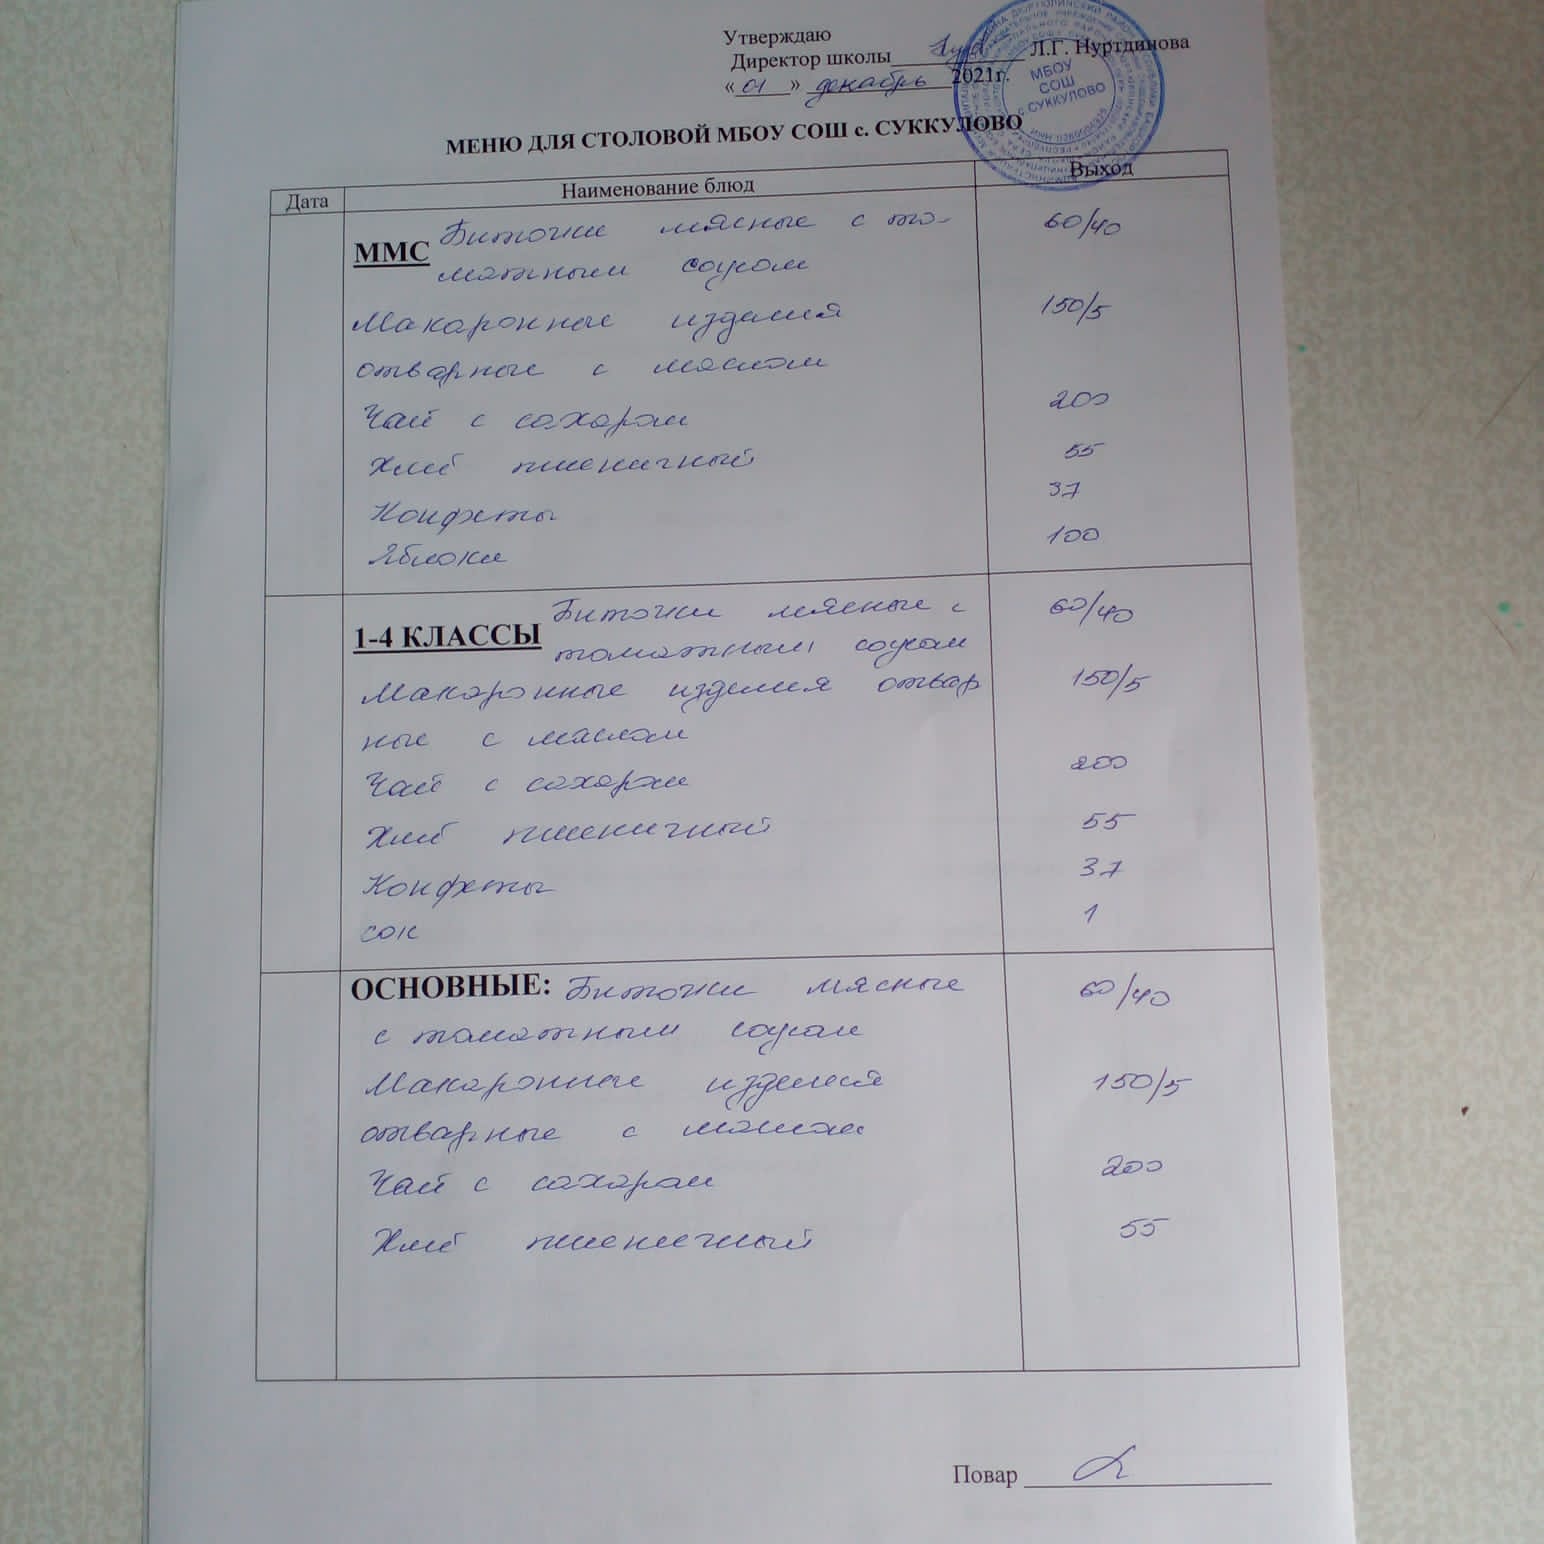 Утверждаю
Директор школы Л.Г. Нуртдинова
« 01 » декабрь 2021г.
МБОУ
СОШ
с СУККУЛОВО
МЕНЮ ДЛЯ СТОЛОВОЙ МБОУ СОШ с. СУККУЛОВО
Дата Наименование блюд Выход
ММС Биточки мясные с то- 60/40
матным соусом
Макаронные изделия 150/5
отварные с маслом
Чай с сахаром 200
Хлеб пшеничный 55
Конфеты 37
Яблоки 100
1-4 КЛАССЫ Биточки мясные с 60/40
томатным соусом
Макаронные изделия отвар 150/5
ные с маслом
Чай с сахаром 200
Хлеб пшеничный 55
Конфеты 37
сок 1
ОСНОВНЫЕ: Биточки мясные 60/40
с томатным соусом
Макаронные изделия 150/5
отварные с маслом
Чай с сахаром 200
Хлеб пшеничный 55
Повар